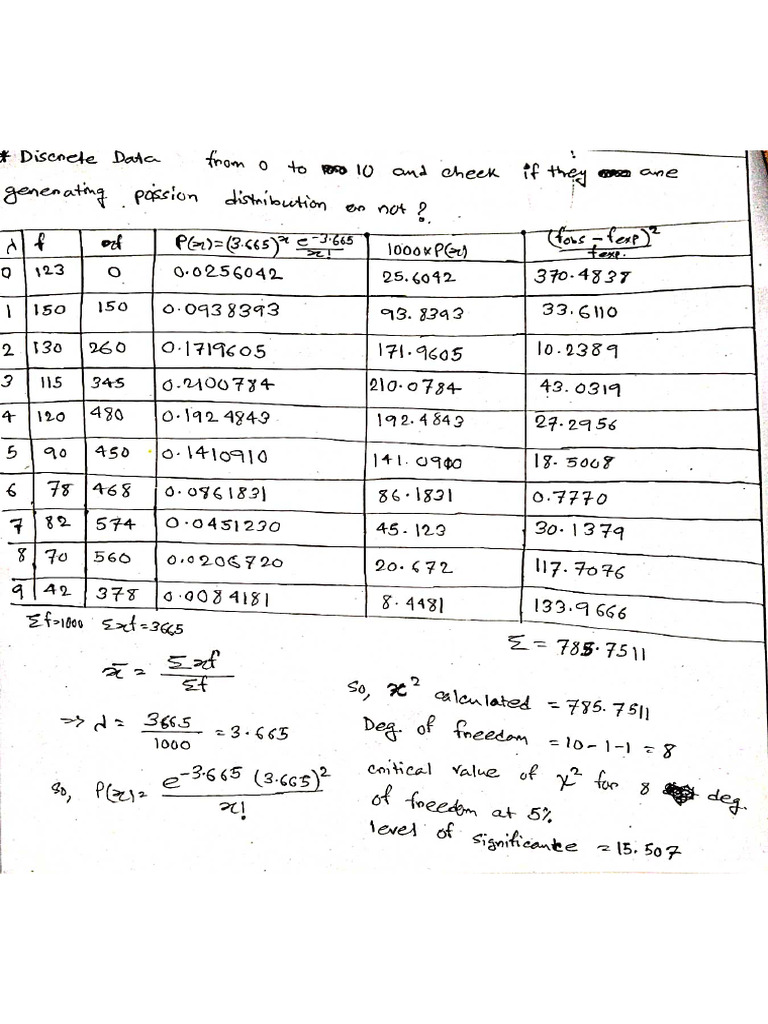 * Discrete Data from 0 to 10 and check if they are
generating possion distribution or not?
λ f xf P(x)=(3.665)^x e^-3.665/x! 1000xP(x) (fobs - fexp)²/fexp.
0 123 0 0.0256042 25.6042 370.4838
1 150 150 0.0938393 93.8393 33.6110
2 130 260 0.1719605 171.9605 10.2389
3 115 345 0.2100784 210.0784 43.0319
4 120 480 0.1924843 192.4843 27.2956
5 90 450 0.1410910 141.0910 18.5008
6 78 468 0.0861831 86.1831 0.7770
7 82 574 0.0451230 45.123 30.1379
8 70 560 0.0206720 20.672 117.7076
9 42 378 0.0084181 8.4481 133.9666
Σf=1000 Σxf=3665
Σ = 785.7511
x̄ = Σxf/Σf
=> λ = 3665/1000 = 3.665
so, P(x)= e^-3.665 (3.665)²/x!
So, x² calculated = 785.7511
Deg. of freedom = 10-1-1 = 8
critical value of χ² for 8 deg.
of freedom at 5%
level of significance = 15.507